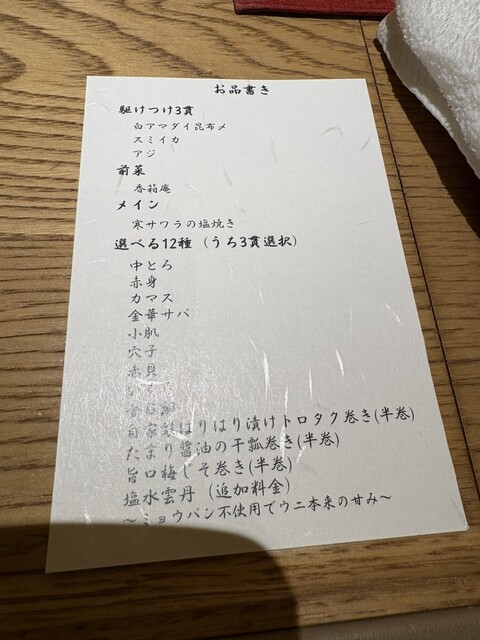 お品書き
駆けつけ3貫
白アマダイ昆布〆
スミイカ
アジ
前菜
香箱庵
メイン
寒サワラの塩焼き
選べる12種（うろ3貫選択）
中とろ
赤身
カマス
金華サバ
小肌
穴子
赤貝
自家製はりはり漬けトロタク巻き(半巻)
たまり醤油の干瓢巻き(半巻)
旨口梅じそ巻き(半巻)
塩水雲丹（追加料金）
〜ミョウバン不使用でウニ本来の甘み〜